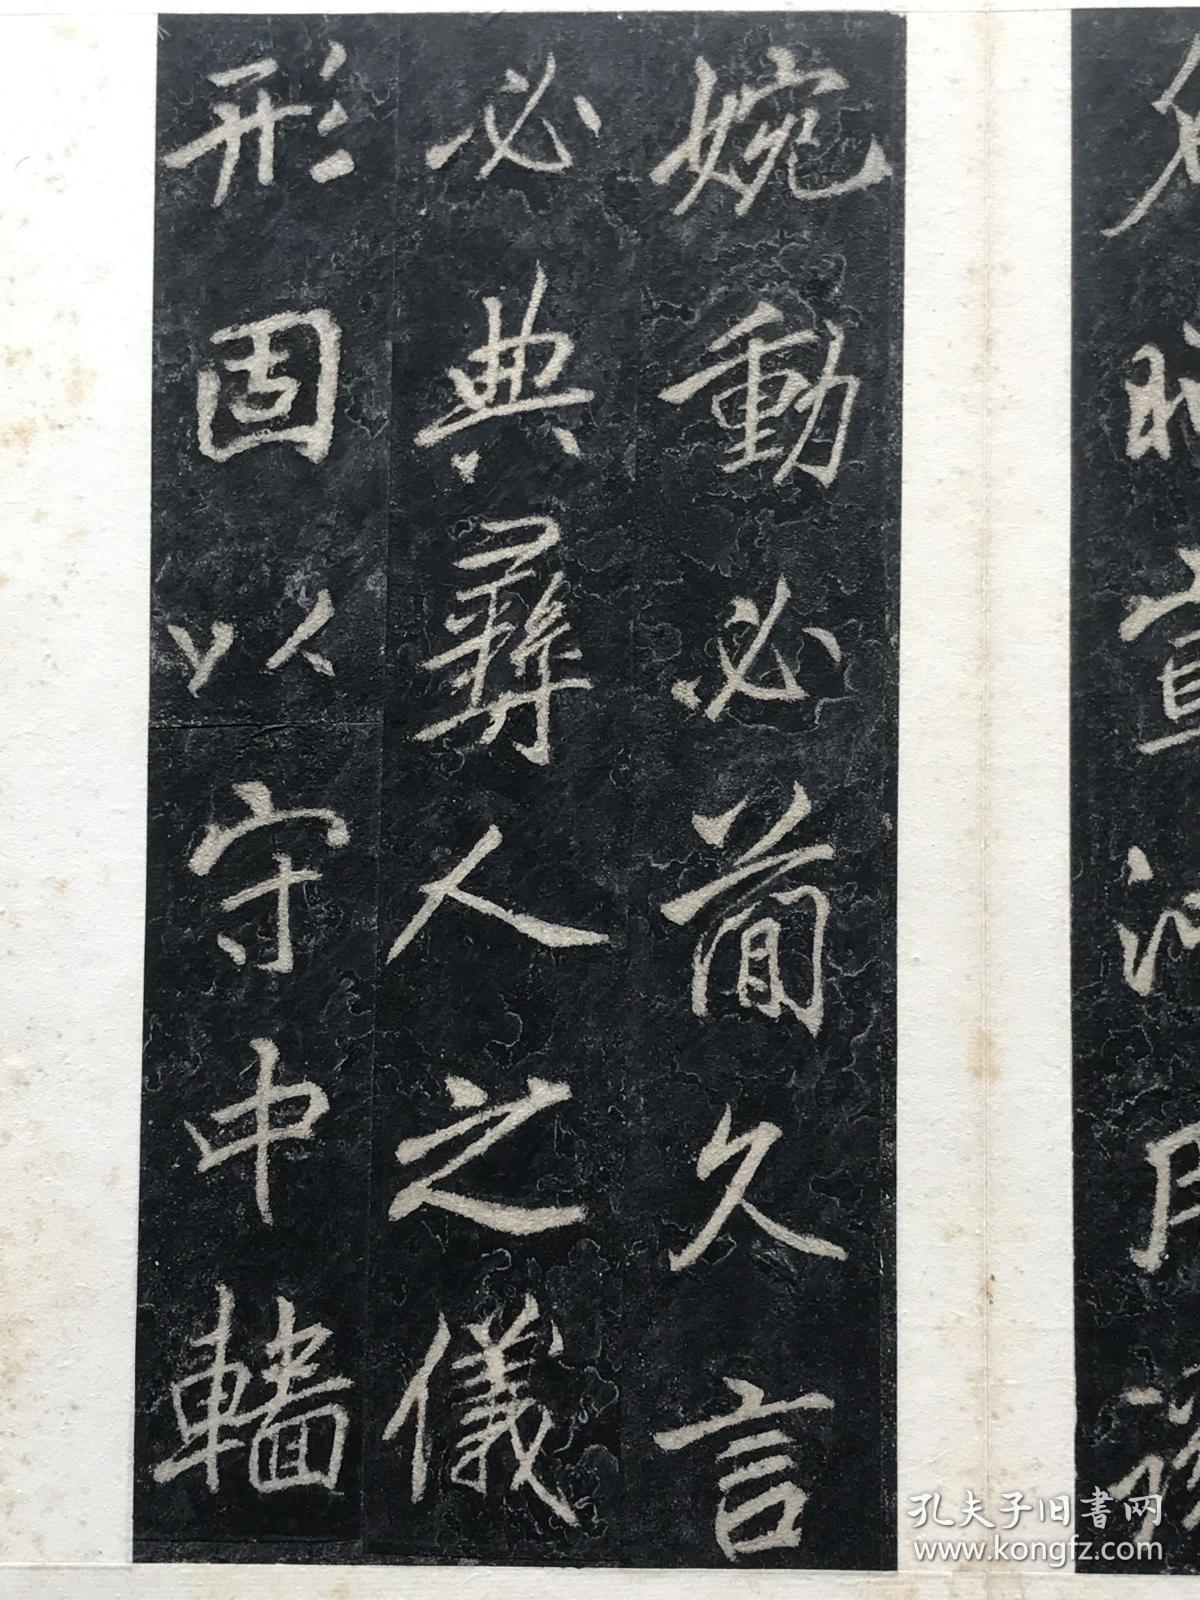 婉動必簡久言
必典彝人之儀
形固以守中轖
孔夫子旧書网
www.kongfz.com